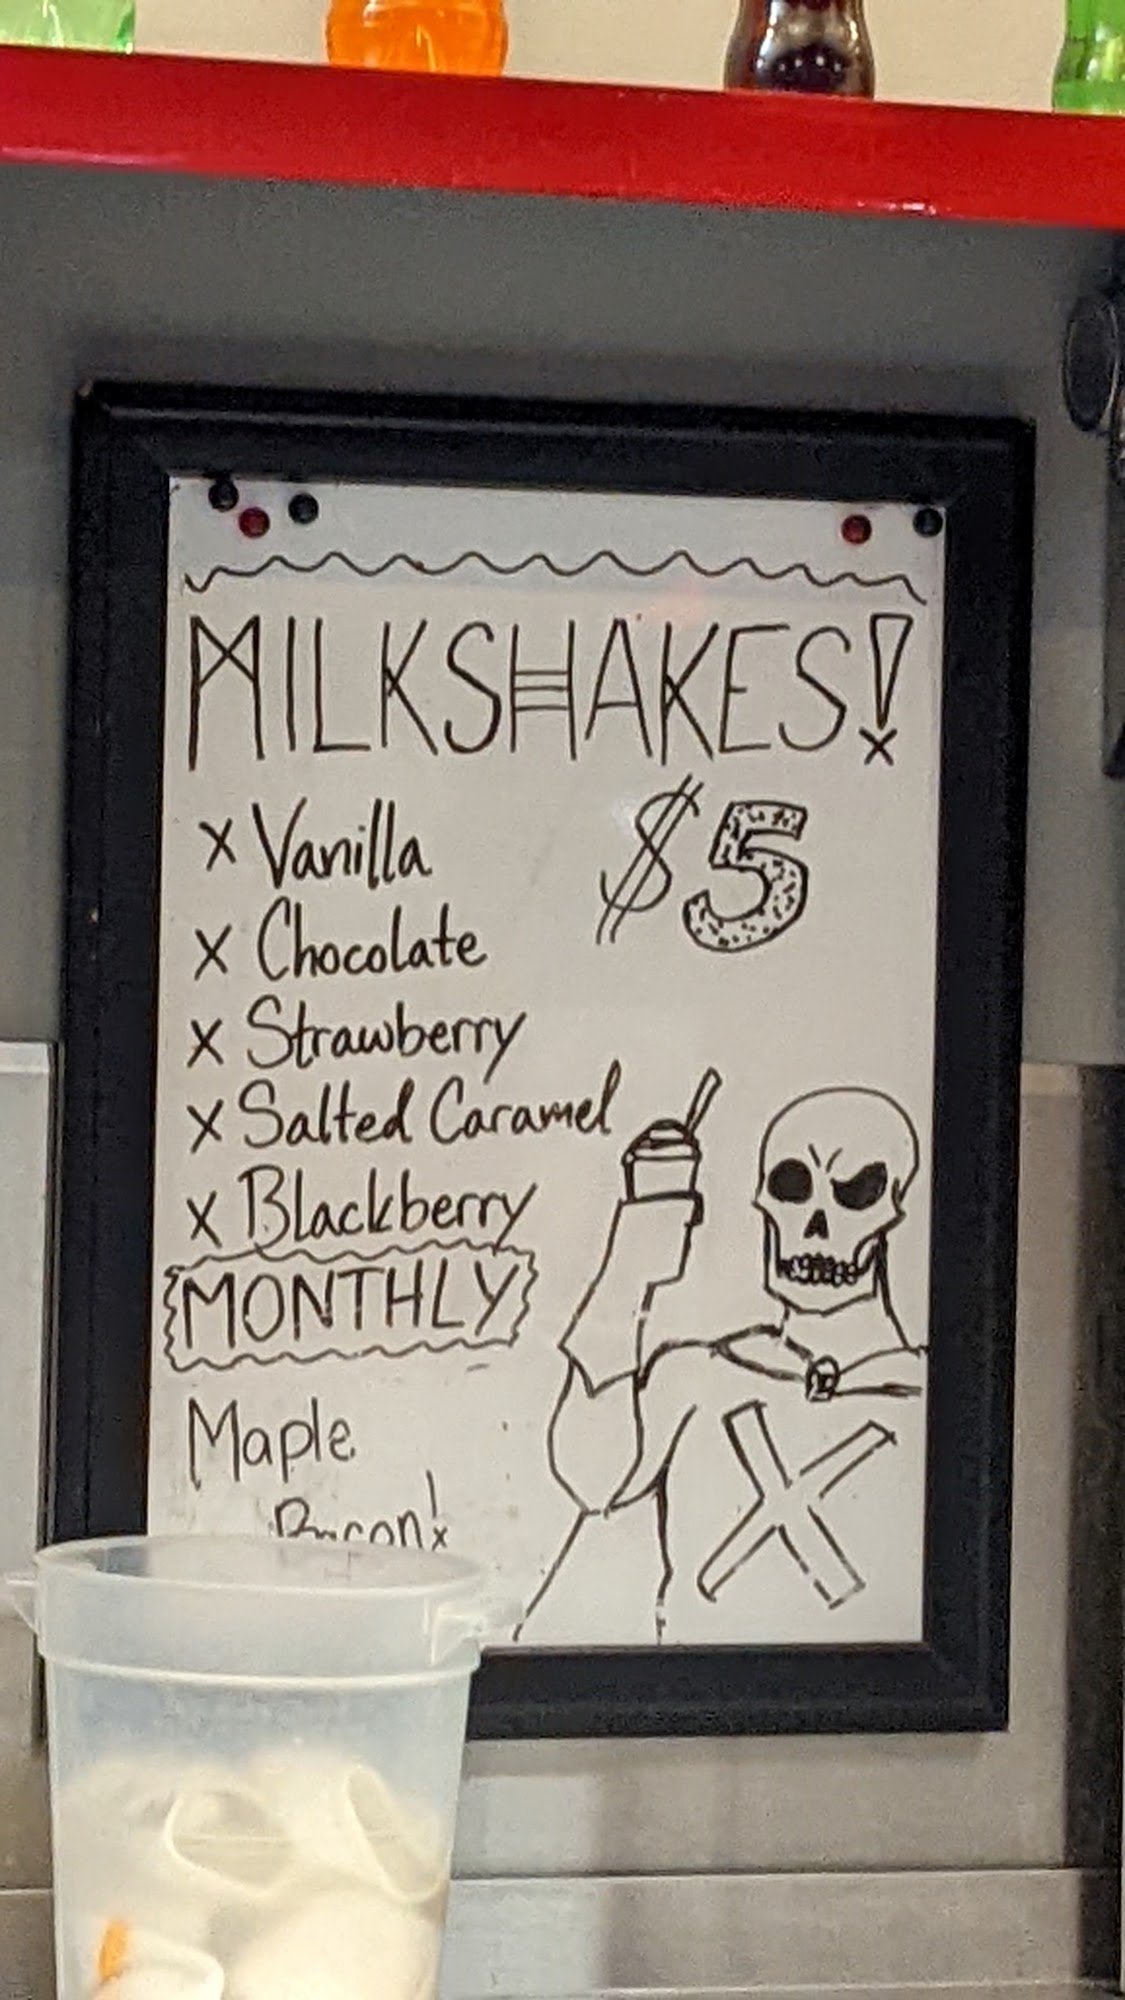 MILKSHAKES!
x Vanilla
$5
x Chocolate
x Strawberry
x Salted Caramel
x Blackberry
MONTHLY
Maple
Bacon!
X